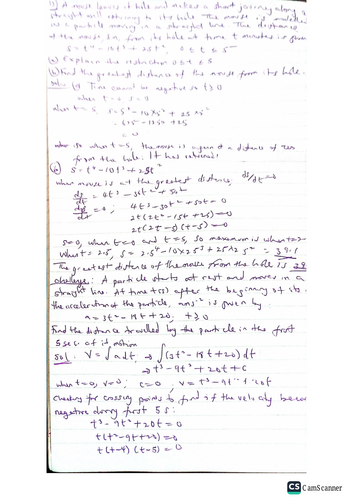 A mouse leaves its hole and makes a short journey along a
straight wall returning to its hole. The mouse is modelled
as a particle moving in a straight line. The distance
of the mouse, s m, from its hole at time t minutes is given
s = t⁴ - 10t³ + 25t², 0 ≤ t ≤ 5
(a) Explain the restriction 0 ≤ t ≤ 5
(b) Find the greatest distance of the mouse from its hole.
Soln. (a) Time cannot be negative so t ≥ 0
when t = 0, s = 0
when t = 5, s = 5⁴ - 10 × 5³ + 25 × 5²
= 0
so when t = 5, the mouse is again at a distance of zero
from the hole. It has returned.
s = t⁴ - 10t³ + 25t²
when mouse is at the greatest distance, ds/dt = 0
ds/dt = 4t³ - 30t² + 50t
ds/dt = 0, 4t³ - 30t² + 50t = 0
2t(2t² - 15t + 25) = 0
2t(2t - 5)(t - 5) = 0
s = 0, when t = 0 and t = 5, so maximum is when t =
when t = 2.5, s = 2.5⁴ - 10 × 2.5³ + 25 × 2.5² = 39.1
The greatest distance of the mouse from the hole is 39
A particle starts at rest and moves in a
straight line. At time t(s) after the beginning of its
the acceleration of the particle, a ms⁻² is given by
a = 3t² - 18t + 20, t ≥ 0
Find the distance travelled by the particle in the first
5 sec of its motion
Sol. V = ∫ a dt, → ∫(3t² - 18t + 20) dt
→ t³ - 9t² + 20t + c
when t = 0, v = 0; c = 0, v = t³ - 9t² + 20t
Checking for crossing points to find if the velocity becom
negative during first 5 s:
t³ - 9t² + 20t = 0
t(t² - 9t + 20) = 0
t(t-4)(t-5) = 0
CS CamScanner